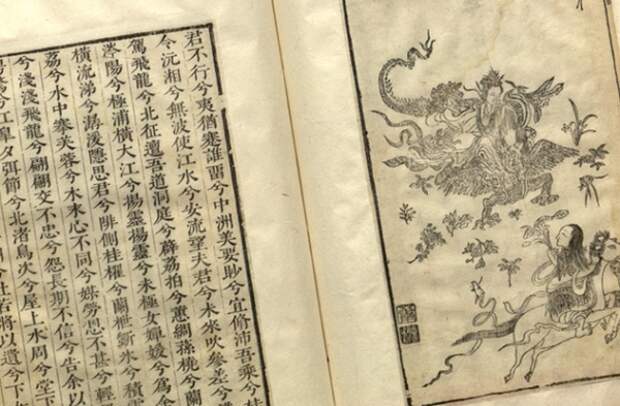 君不行兮夷猶蹇誰留兮中洲美要眇兮宜脩沛吾乘兮桂
令沅湘兮無波使江水兮安流望夫君兮未來吹參差兮
駕飛龍兮北征邅吾道兮洞庭薜荔拍兮蕙綢蓀橈兮蘭
涔陽兮極浦橫大江兮揚靈揚靈兮未極女嬋媛兮為余
橫流涕兮潺湲隱思君兮陫側桂櫂兮蘭枻斲冰兮積雪
荔兮水中搴芙蓉兮木末心不同兮媒勞恩不甚兮輕
兮淺淺飛龍兮翩翩交不忠兮怨長期不信兮告余以
騖兮江皋夕弭節兮北渚鳥次兮屋上水周兮堂下
兮杜若將以遺兮下女